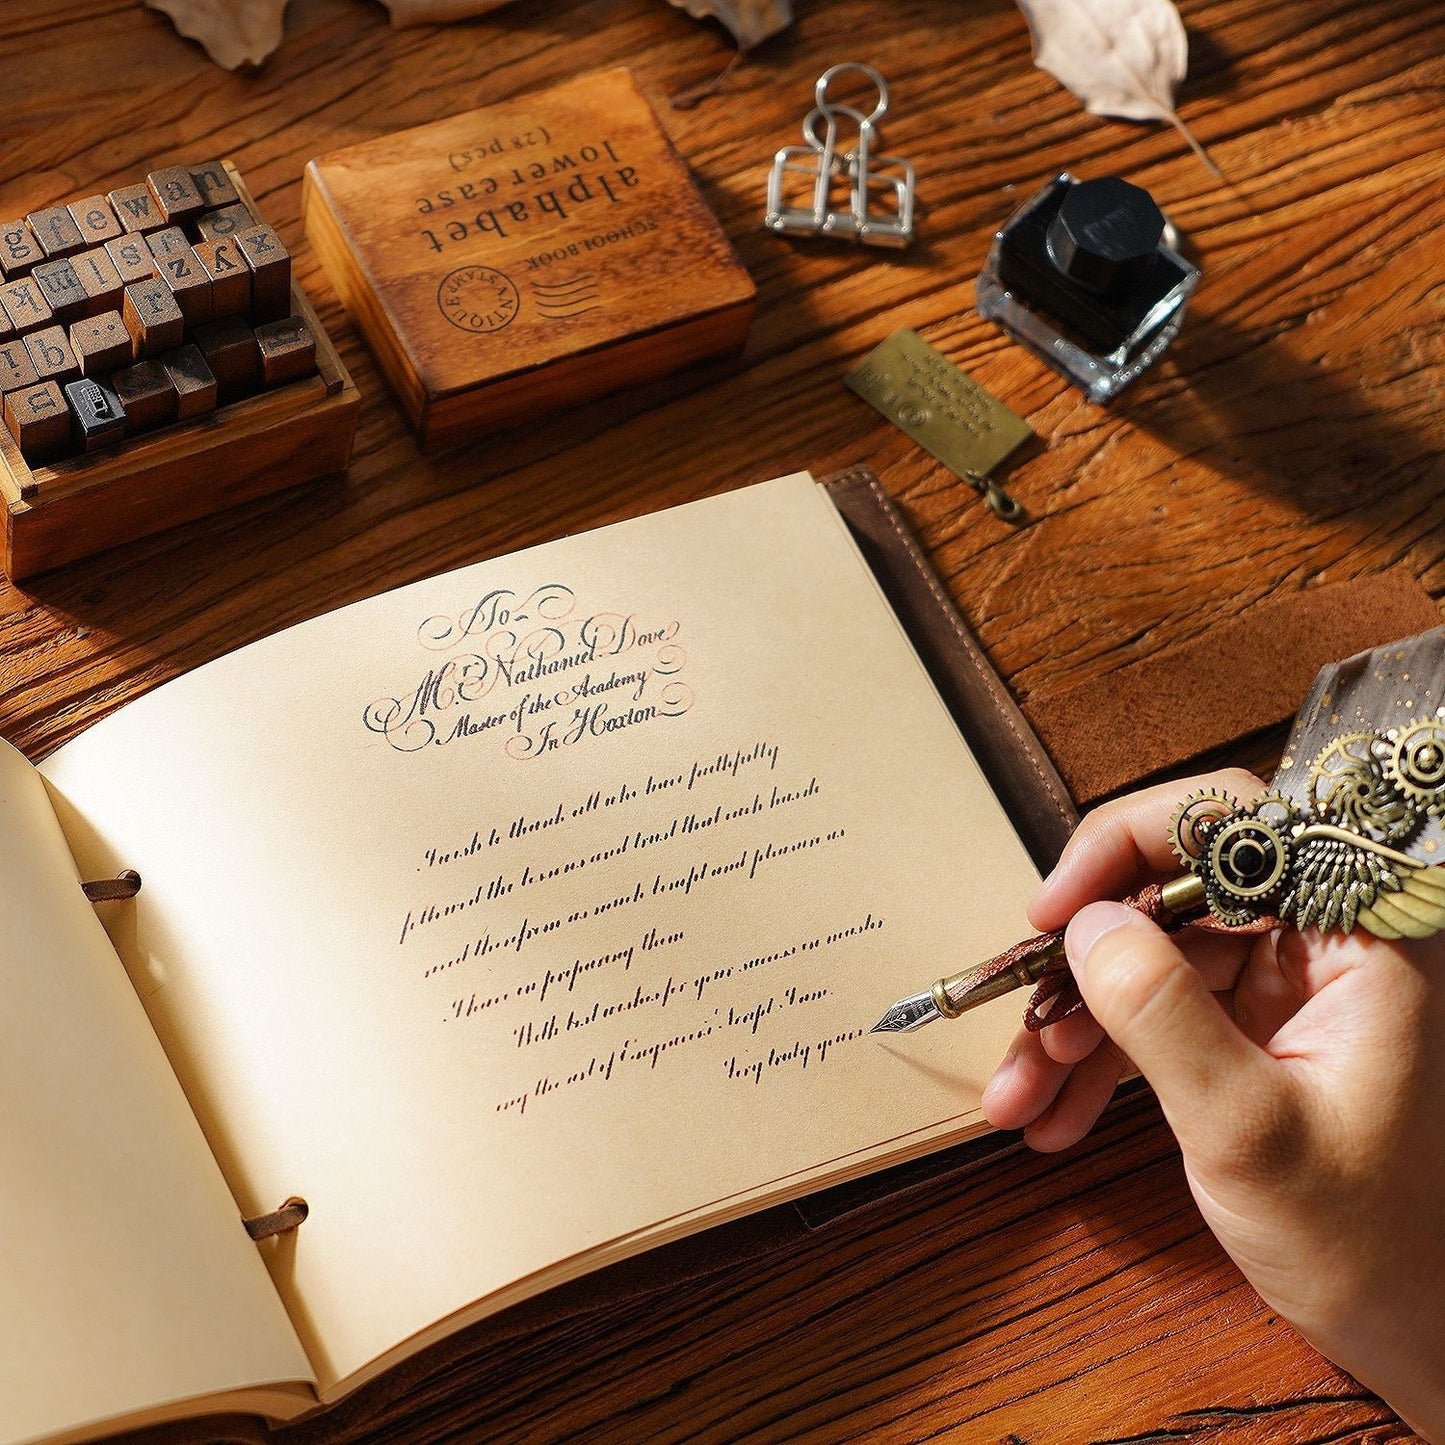 alphabet
lower case
(28 pcs)
SCHOOLBOOK
ANTIQUE STAMP
g f e w a n
k m l s f o
z y x
r
i b
u
To
Mr. Nathaniel Dove
Master of the Academy
In Hoxton
I wish to thank all who have faithfully
followed the lessons and trust that each has
and pleasure as
I have in preparing them
With best wishes for your success in
the art of Engrossers' Script I am.
Very truly yours